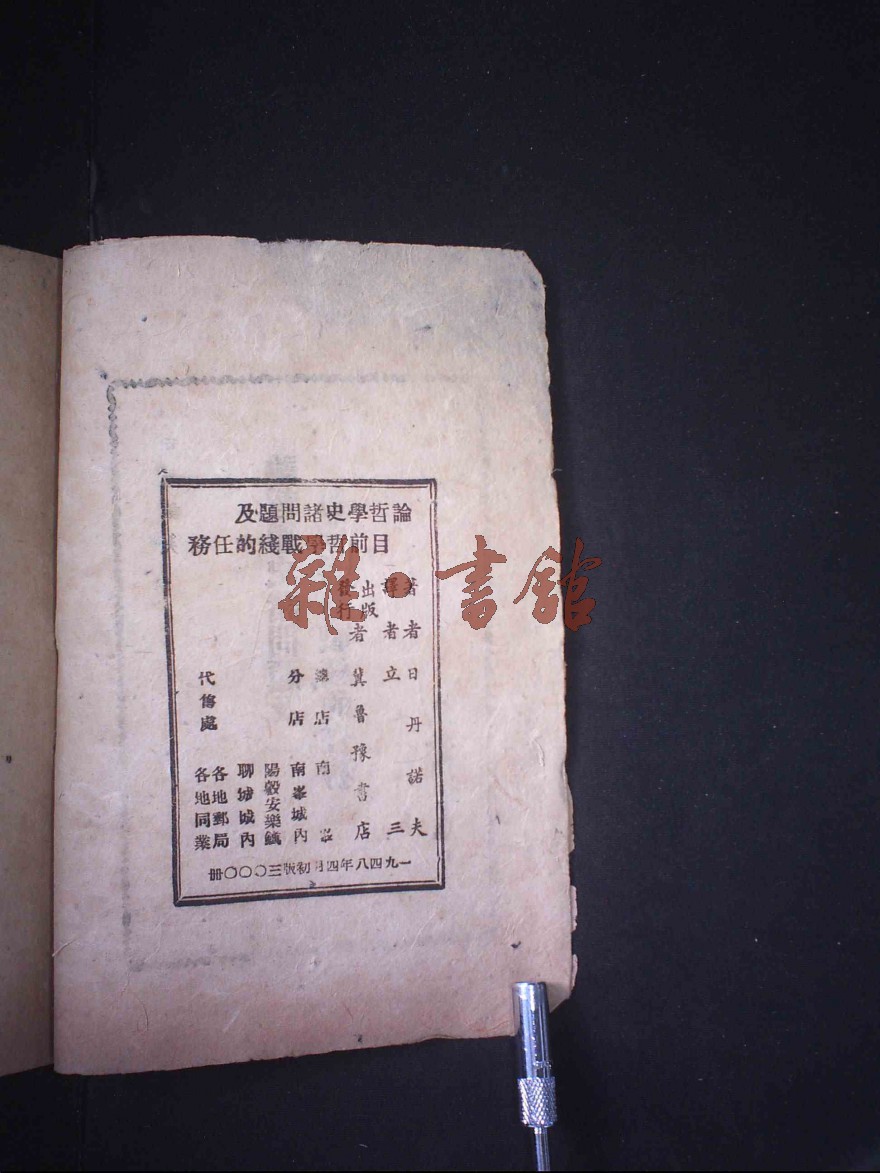 論哲學史諸問題及
目前哲學戰綫的任務
著者日丹諾夫
譯者立三
出版
發行
者冀魯豫書店
總店南峯
分店南峯城內
陽穀安樂鎮
聊城城內
代售處
各地郵局
各地同業
一九四八年四月初版三〇〇〇冊
雜·書館